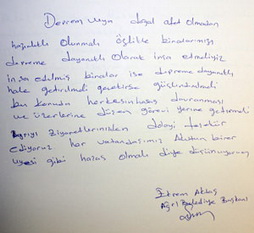 Deprem veya doğal afet olmadan
hazırlıklı olunmalı özlikle binalarımızı
depreme dayanıklı olarak inşa etmeliyiz
inşa edilmiş binalar ise depreme dayanıklı
hale getirilmeli gerekirse güçlendirilmeli
bu konuda herkesin hassas davranması
ve üzerlerine düşen görevi yerine getirmeli
ziyaretlerinizden dolayı teşekkür
ediyoruz her vatandaşımız Akutun birer
üyesi gibi hassas olmalı diye düşünüyorum
Ağrı Belediye Başkanı